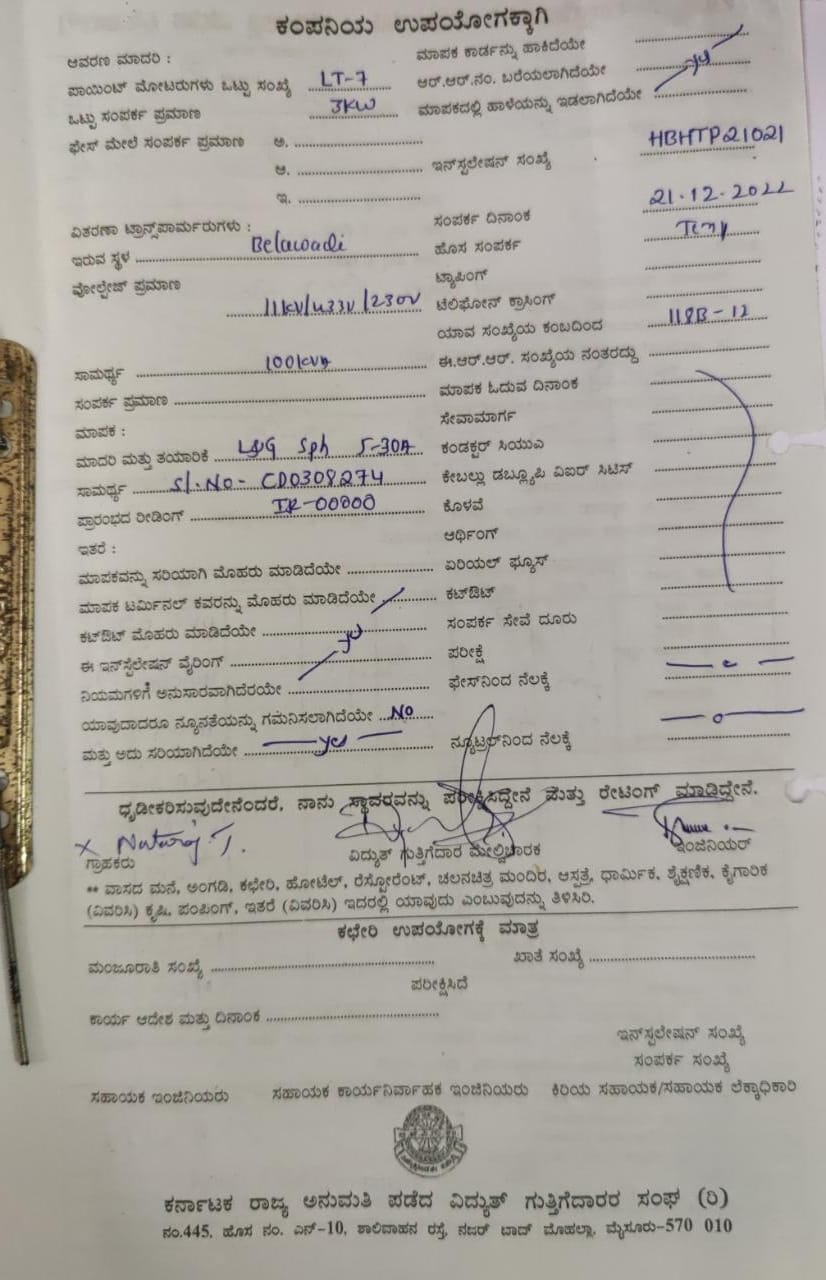 ಕಂಪನಿಯ ಉಪಯೋಗಕ್ಕಾಗಿ
ಆವರಣ ಮಾದರಿ :
ಮಾಪಕ ಕಾರ್ಡನ್ನು ಹಾಕಿದೆಯೇ
ಪಾಯಿಂಟ್ ಮೋಟರುಗಳು ಒಟ್ಟು ಸಂಖ್ಯೆ LT-7
ಆರ್.ಆರ್.ನಂ. ಬರೆಯಲಾಗಿದೆಯೇ yes
ಒಟ್ಟು ಸಂಪರ್ಕ ಪ್ರಮಾಣ 3KW
ಮಾಪಕದಲ್ಲಿ ಹಾಳೆಯನ್ನು ಇಡಲಾಗಿದೆಯೇ
ಫೇಸ್ ಮೇಲೆ ಸಂಪರ್ಕ ಪ್ರಮಾಣ ಅ.
ಆ.
ಇನ್‌ಸ್ಟಲೇಷನ್ ಸಂಖ್ಯೆ HBHTP21021
ಇ.
ಸಂಪರ್ಕ ದಿನಾಂಕ 21.12.2022
ವಿತರಣಾ ಟ್ರಾನ್ಸ್‌ಫಾರ್ಮರುಗಳು :
ಹೊಸ ಸಂಪರ್ಕ Temp
ಇರುವ ಸ್ಥಳ Belawadi
ಟ್ಯಾಪಿಂಗ್
ವೋಲ್ಟೇಜ್ ಪ್ರಮಾಣ 11KV/433V/230V
ಟೆಲಿಫೋನ್ ಕ್ರಾಸಿಂಗ್
ಯಾವ ಸಂಖ್ಯೆಯ ಕಂಬದಿಂದ 118B-12
ಸಾಮರ್ಥ್ಯ 100kVA
ಈ.ಆರ್.ಆರ್. ಸಂಖ್ಯೆಯ ನಂತರದ್ದು
ಸಂಪರ್ಕ ಪ್ರಮಾಣ
ಮಾಪಕ ಓದುವ ದಿನಾಂಕ
ಮಾಪಕ :
ಸೇವಾಮಾರ್ಗ
ಮಾದರಿ ಮತ್ತು ತಯಾರಿಕೆ L&G Sph 5-30A
ಕಂಡಕ್ಟರ್ ಸಿಯುಎ
ಸಾಮರ್ಥ್ಯ Sl.No- CD0308274
ಕೇಬಲ್ಲು ಡಬ್ಲ್ಯೂಪಿ ವಿಐಆರ್ ಸಿಟಿಸ್
ಪ್ರಾರಂಭದ ರೀಡಿಂಗ್ IR-00000
ಕೊಳವೆ
ಇತರೆ :
ಆರ್ಥಿಂಗ್
ಮಾಪಕವನ್ನು ಸರಿಯಾಗಿ ಮೊಹರು ಮಾಡಿದೆಯೇ
ಏರಿಯಲ್ ಫ್ಯೂಸ್
ಮಾಪಕ ಟರ್ಮಿನಲ್ ಕವರನ್ನು ಮೊಹರು ಮಾಡಿದೆಯೇ
ಕಟ್‌ಔಟ್
ಕಟ್‌ಔಟ್ ಮೊಹರು ಮಾಡಿದೆಯೇ yes
ಸಂಪರ್ಕ ಸೇವೆ ದೂರು
ಈ ಇನ್‌ಸ್ಟೆಲೇಷನ್ ವೈರಿಂಗ್
ಪರೀಕ್ಷೆ
ನಿಯಮಗಳಿಗೆ ಅನುಸಾರವಾಗಿದೆರಯೇ
ಫೇಸ್‌ನಿಂದ ನೆಲಕ್ಕೆ
ಯಾವುದಾದರೂ ನ್ಯೂನತೆಯನ್ನು ಗಮನಿಸಲಾಗಿದೆಯೇ No
ಮತ್ತು ಅದು ಸರಿಯಾಗಿದೆಯೇ yes
ನ್ಯೂಟ್ರಲ್‌ನಿಂದ ನೆಲಕ್ಕೆ
ಧೃಡೀಕರಿಸುವುದೇನೆಂದರೆ, ನಾನು ಸ್ಥಾವರವನ್ನು ಪರೀಕ್ಷಿಸಿದ್ದೇನೆ ಮತ್ತು ರೇಟಿಂಗ್ ಮಾಡಿದ್ದೇನೆ.
x Nataraj T.
ಗ್ರಾಹಕರು ವಿದ್ಯುತ್ ಗುತ್ತಿಗೆದಾರ ಮೇಲ್ವಿಚಾರಕ ಇಂಜಿನಿಯರ್
** ವಾಸದ ಮನೆ, ಅಂಗಡಿ, ಕಛೇರಿ, ಹೋಟೆಲ್, ರೆಸ್ಟೋರೆಂಟ್, ಚಲನಚಿತ್ರ ಮಂದಿರ, ಆಸ್ಪತ್ರೆ, ಧಾರ್ಮಿಕ, ಶೈಕ್ಷಣಿಕ, ಕೈಗಾರಿಕ
(ವಿವರಿಸಿ) ಕೃಷಿ, ಪಂಪಿಂಗ್, ಇತರೆ (ವಿವರಿಸಿ) ಇದರಲ್ಲಿ ಯಾವುದು ಎಂಬುವುದನ್ನು ತಿಳಿಸಿರಿ.
ಕಛೇರಿ ಉಪಯೋಗಕ್ಕೆ ಮಾತ್ರ
ಮಂಜೂರಾತಿ ಸಂಖ್ಯೆ
ಖಾತೆ ಸಂಖ್ಯೆ
ಪರೀಕ್ಷಿಸಿದೆ
ಕಾರ್ಯ ಆದೇಶ ಮತ್ತು ದಿನಾಂಕ
ಇನ್‌ಸ್ಟಲೇಷನ್ ಸಂಖ್ಯೆ
ಸಂಪರ್ಕ ಸಂಖ್ಯೆ
ಸಹಾಯಕ ಇಂಜಿನಿಯರು ಸಹಾಯಕ ಕಾರ್ಯನಿರ್ವಾಹಕ ಇಂಜಿನಿಯರು ಕಿರಿಯ ಸಹಾಯಕ/ಸಹಾಯಕ ಲೆಕ್ಕಾಧಿಕಾರಿ
ಕರ್ನಾಟಕ ರಾಜ್ಯ ಅನುಮತಿ ಪಡೆದ ವಿದ್ಯುತ್ ಗುತ್ತಿಗೆದಾರರ ಸಂಘ (ರಿ)
ನಂ.445, ಹೊಸ ನಂ. ಎನ್-10, ಶಾಲಿವಾಹನ ರಸ್ತೆ, ನಜರ್ ಬಾದ್ ಮೊಹಲ್ಲಾ, ಮೈಸೂರು-570 010